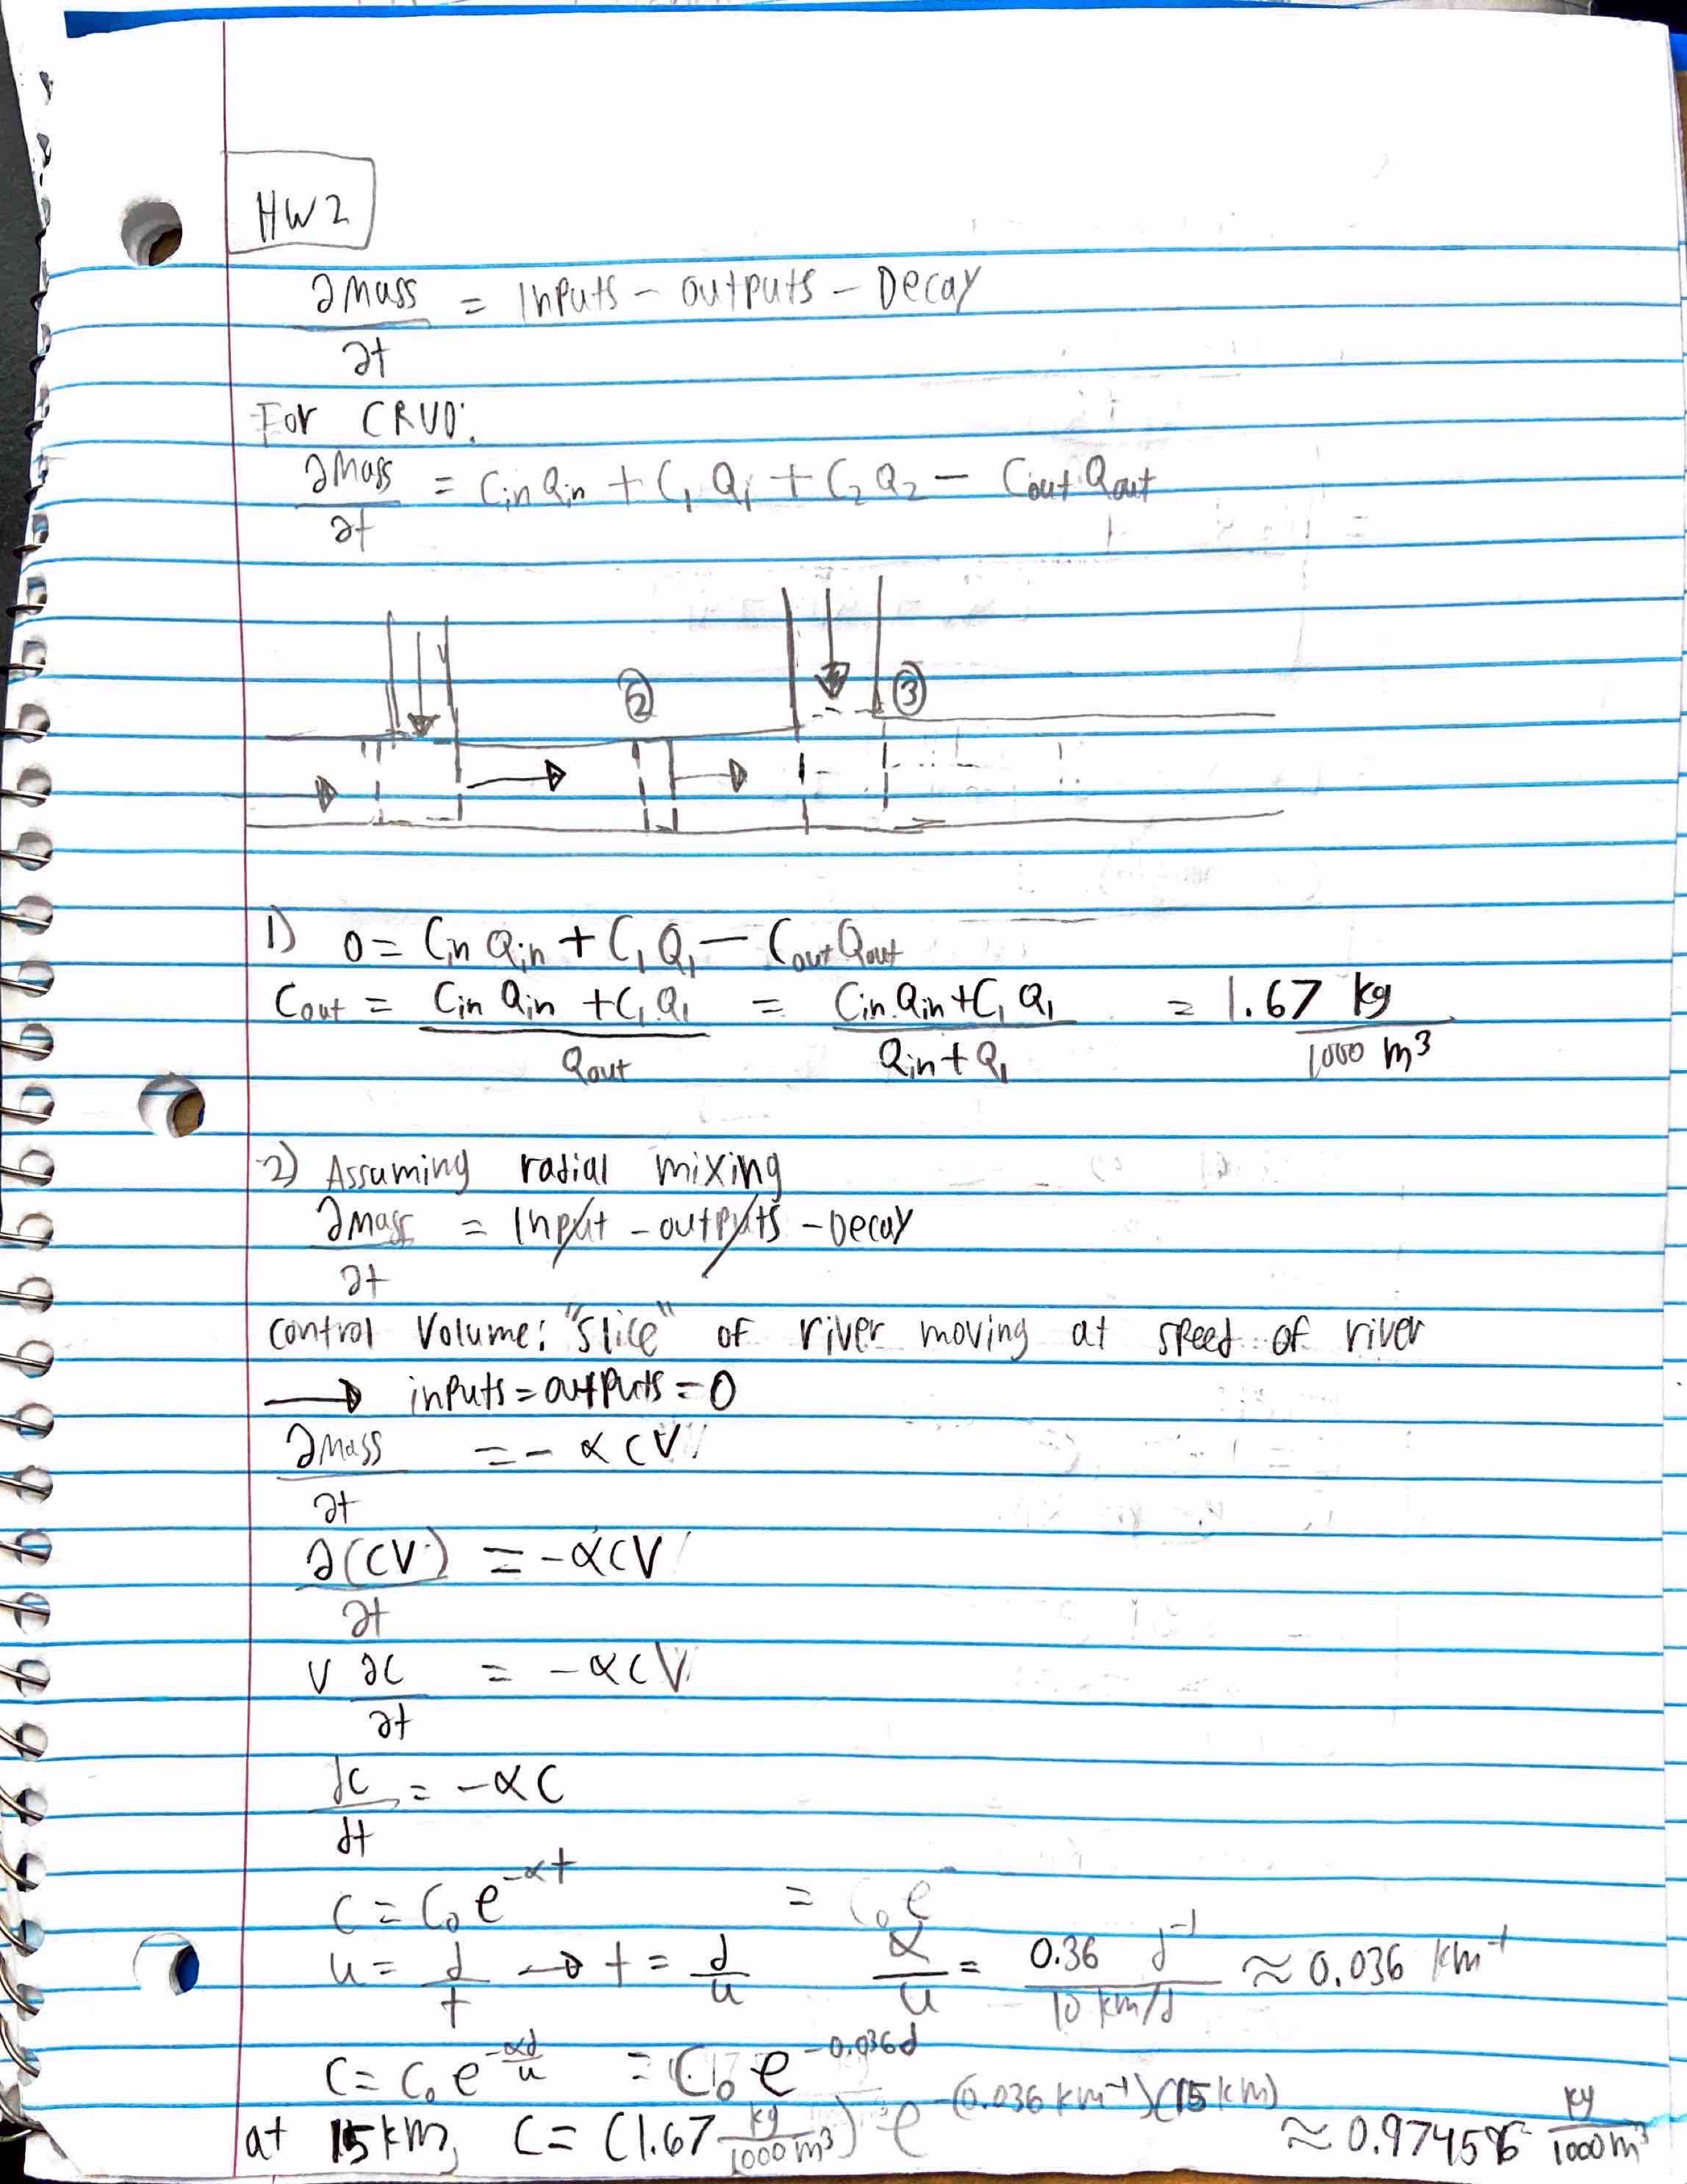 HW2
∂Mass/∂t = Inputs - outputs - Decay
For CRUD:
∂Mass/∂t = Cin Qin + C₁ Q₁ + C₂ Q₂ - Cout Qout
② ③
1) 0 = Cin Qin + C₁ Q₁ - Cout Qout
Cout = (Cin Qin + C₁ Q₁)/Qout = (Cin Qin + C₁ Q₁)/(Qin + Q₁) = 1.67 kg/1000 m³
2) Assuming radial mixing
∂Mass/∂t = Input - outputs - Decay
control Volume: "slice" of river moving at speed of river
→ inputs = outputs = 0
∂Mass/∂t = - αCV
∂(CV)/∂t = -αCV
V ∂C/∂t = -αCV
dC/dt = -αC
C = C₀e^(-αt) = C₀e
u = d/t → t = d/u α/u = 0.36 d⁻¹/10 km/d ≈ 0.036 km⁻¹
C = C₀e^(-αd/u) = C₀e^(-0.036d)
at 15km, C = (1.67 kg/1000m³) e^(-(0.036 km⁻¹)(15km)) ≈ 0.97456 kg/1000m³